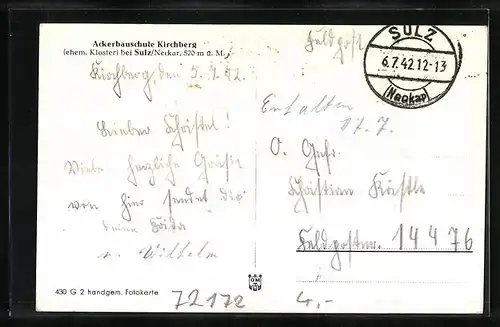 Ackerbauschule Kirchberg
(ehem. Kloster) bei Sulz/Neckar, 570 m ü. M.
Feldpost
SULZ
6.7.42.12-13
(Neckar)
Kirchberg, den 5.7.42.
Erhalten
17.7.
Lieber Christel!
Viele herzliche Grüße
von hier sendet dir
deine
u. Wilhelm
O. Gefr.
Christian
Feldpostnr. 14476
430 G 2 handgem. Fotokarte
72172
4,-